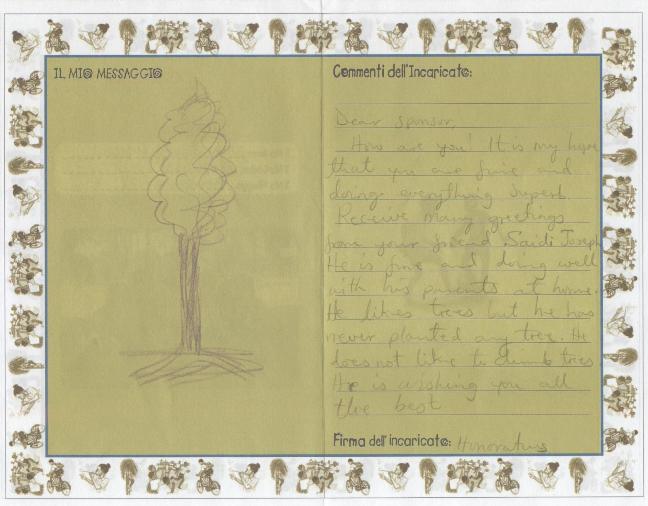 IL MIO MESSAGGIO
Commenti dell'Incaricato:
Dear sponsor,
How are you! It is my hope
that you are fine and
doing everything superb.
Receive many greetings
from your friend Saidi Joseph
He is fine and doing well
with his parents at home.
He likes trees but he has
never planted any tree. He
does not like to climb trees.
He is wishing you all
the best
Firma dell'incaricato: Honoratus